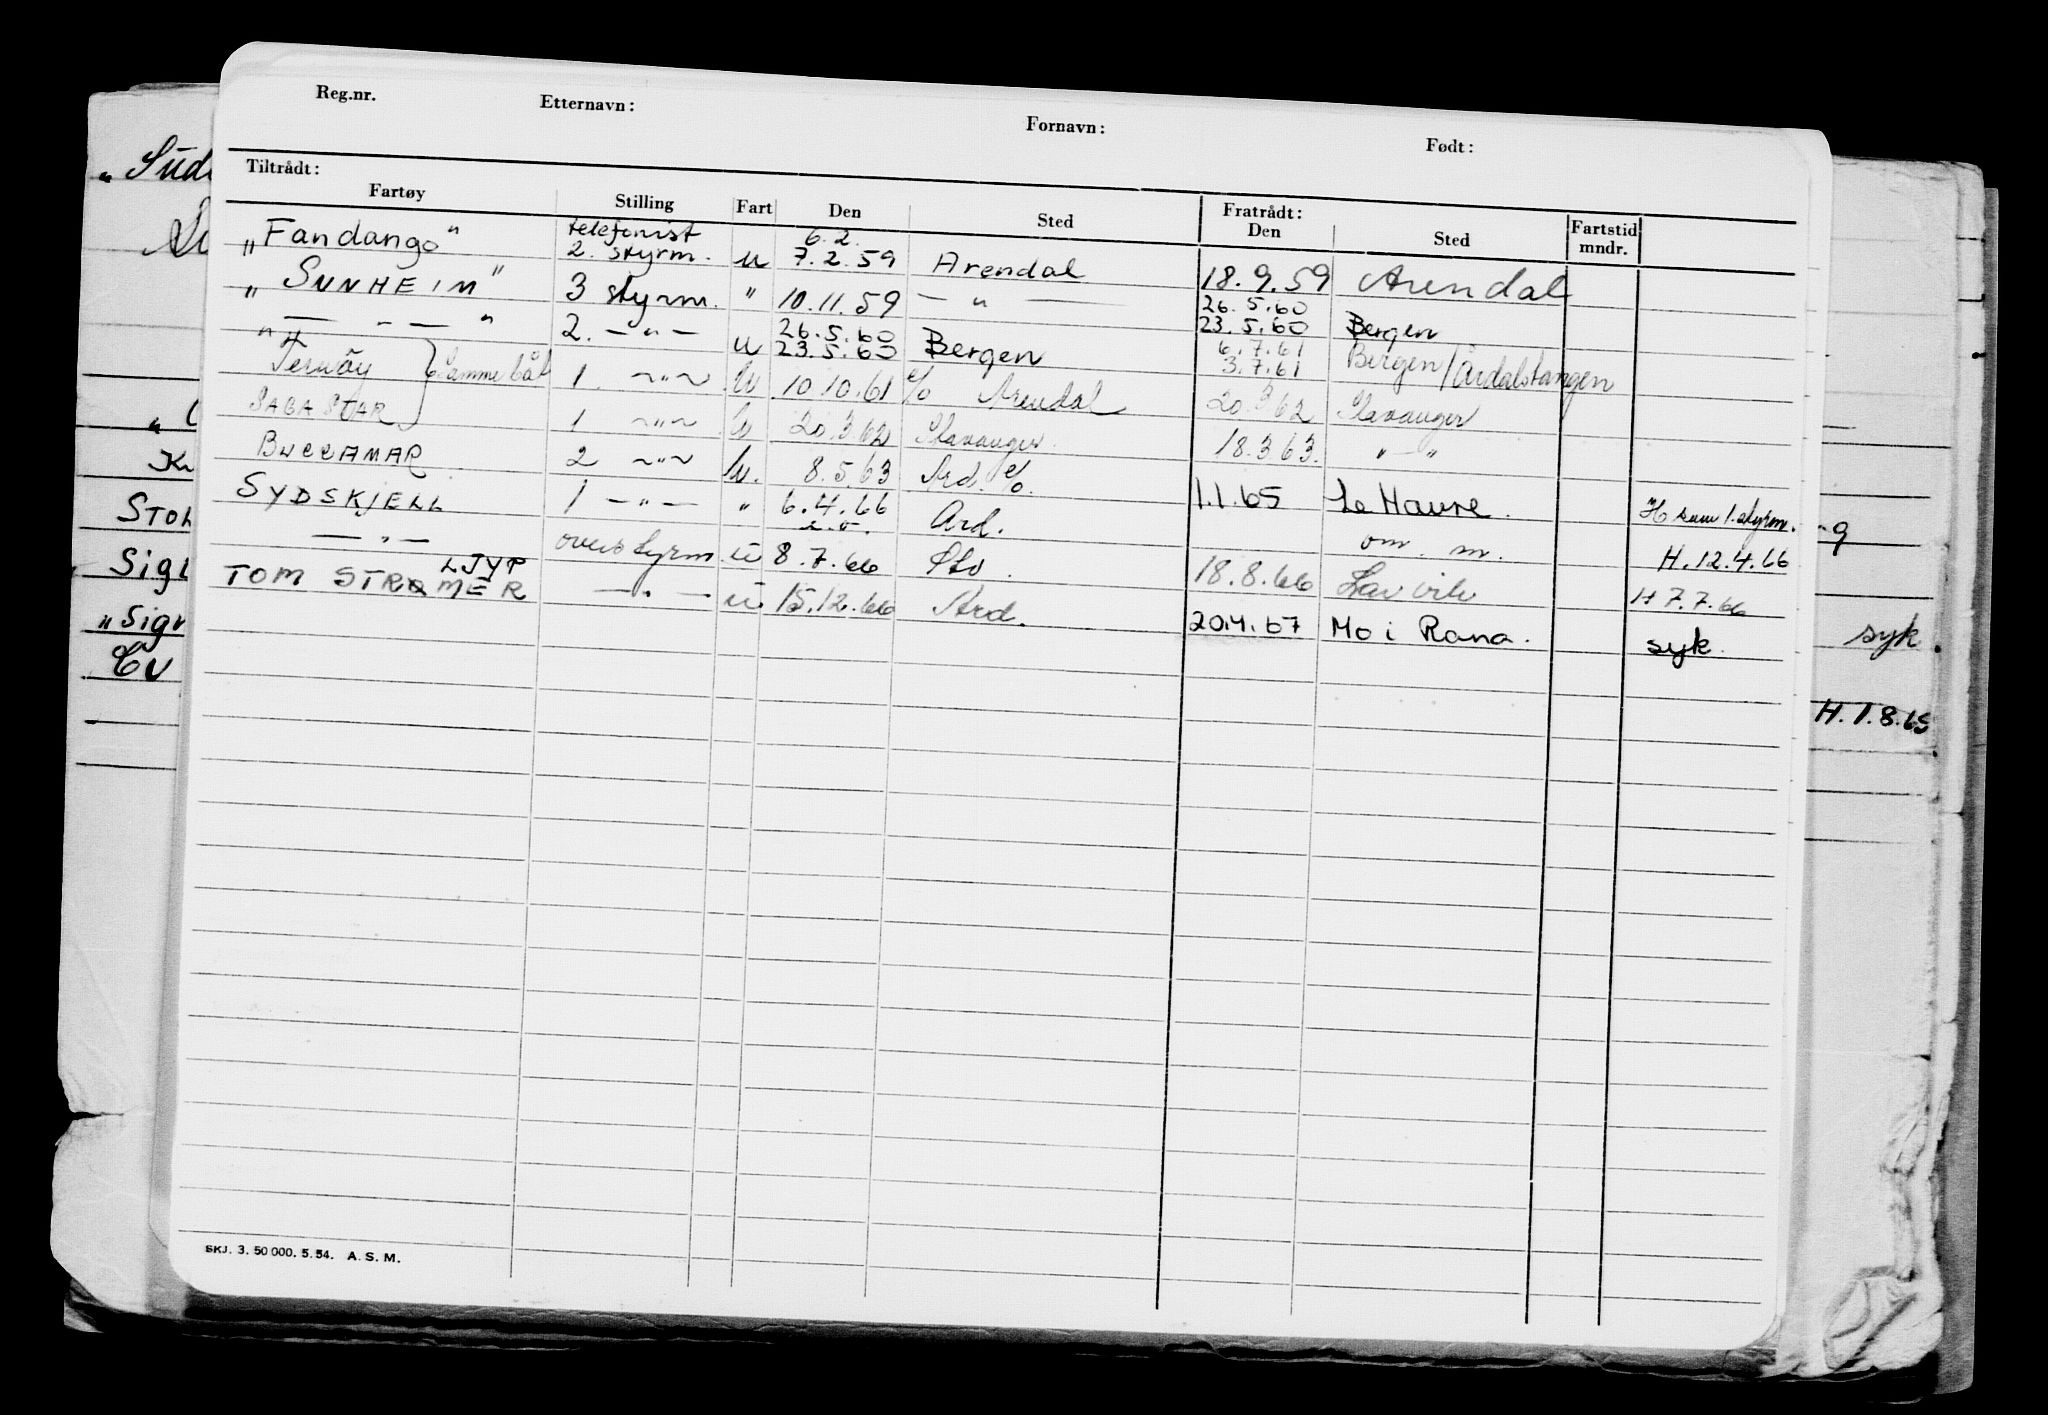 Reg.nr. Etternavn: Fornavn: Født:
Tiltrådt: Fratrådt:
Fartøy Stilling Fart Den Sted Den Sted Fartstid mndr.
telefonist 6.2.
„Fandango" 2. styrm. u 7.2.59 Arendal 18.9.59 Arendal
„SUNHEIM" 3 styrm. " 10.11.59 — " — 26.5.60 23.5.60 Bergen
" — " — " 2. — " — u 26.5.60 23.5.60 Bergen 6.7.61 3.7.61 Bergen/Årdalstangen
Ternöy } Samme båt 1. ~"~ U 10.10.61 c/o Arendal 20.3.62 Stavanger
SAGA STAR 1 ~"~ U 20.3.62 Stavanger. 18.3.63. " — "
BUCCAMAR 2 ~"~ U. 8.5.63 Ard. c/o. 1.1.65 Le Havre. H som 1. styrm.
SYDSKJELL 1 — " — " 6.4.66 Ard. om. m. H. 12.4.66
— " — overstyrm. u 8.7.66 18.8.66 Larvik H 7.7.66
LJYP
TOM STRØMER — " — u 15.12.66 Ard. 20.4.67 Mo i Rana. syk.
SKJ. 3. 50 000. 5. 54. A. S. M.
syk.
H. 1.8.65